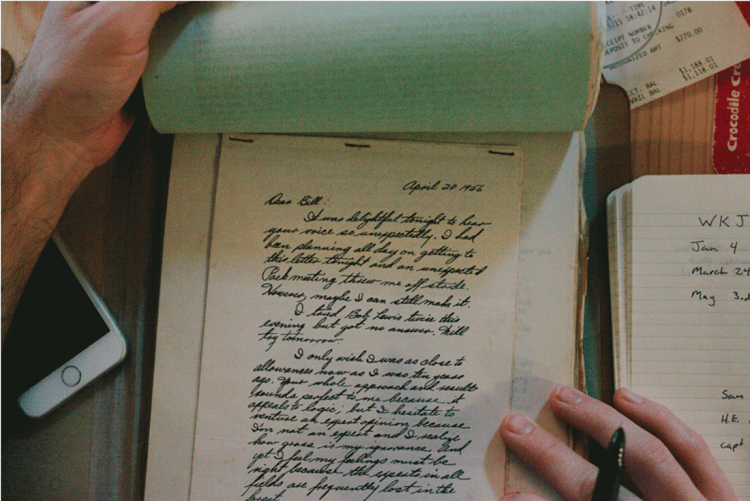 April 20 1956
Dear Bill:
It was delightful tonight to hear
your voice so unexpectedly. I had
been planning all day on getting to
this letter tonight and an unexpected
Pack meeting threw me off stride.
However, maybe I can still make it.
I tried Bob Lewis twice this
evening but got no answer. Will
try tomorrow.
I only wish I was as close to
allowances now as I was ten years
ago. Your whole approach and results
sounds perfect to me because it
appeals to logic; but I hesitate to
venture an expert opinion because
I'm not an expert and I realize
how gross is my ignorance. And
yet I feel my feelings must be
right because the experts in all
fields are frequently lost in the
forest
TIME
18:42:14
0178
CEIPT NUMBER
DEPOSIT TO CHECKING
$270.00
AUTHORIZED AMT
$1,188.01
$1,118.01
CT. BAL
VAIL BAL
Crocodile Cr
WKJ
Jan 4
March 24
May 3rd
Sam
H.E.
capt